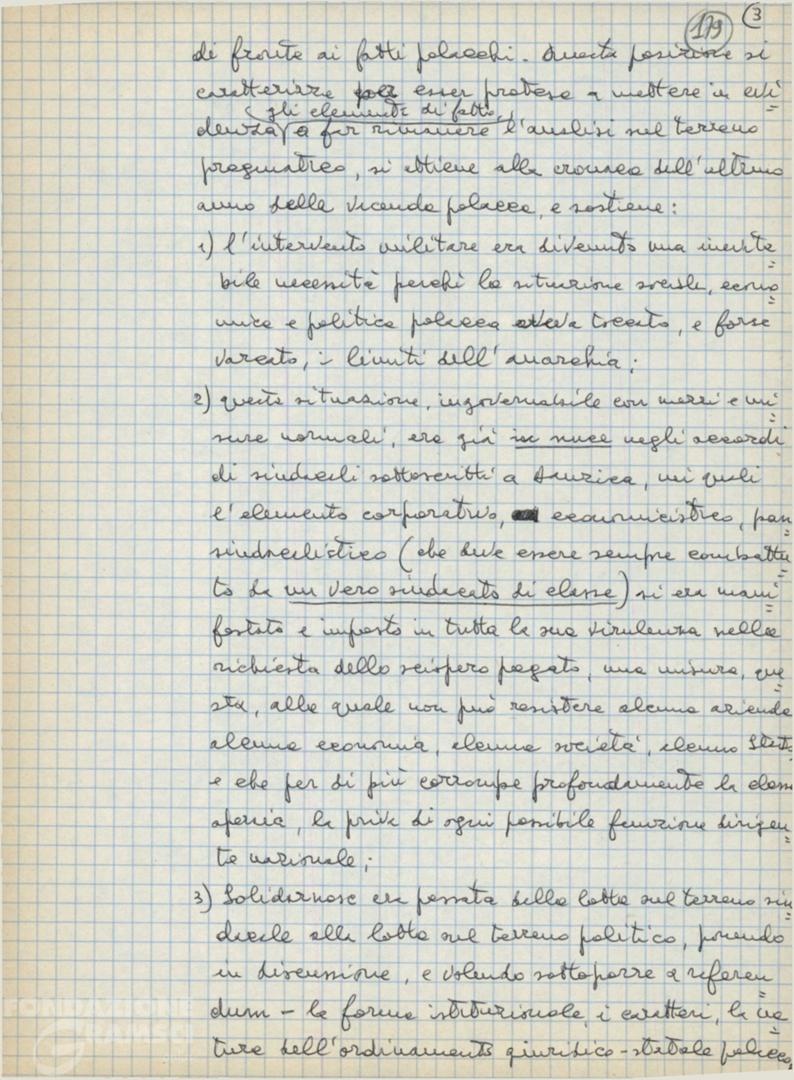 179 3
di fronte ai fatti polacchi. Questa posizione si
caratterizza per esser protesa a mettere in evi=
gli elementi di fatto,
denza a far rimanere l'analisi sul terreno
pragmatico, si attiene alla cronaca dell'ultimo
anno della vicenda polacca, e sostiene:
1) l'intervento militare era divenuto una inevita=
bile necessità perchè la situazione sociale, econo=
mica e politica polacca aveva toccato, e forse
varcato, i limiti dell'anarchia;
2) questa situazione, ingovernabile con mezzi e mi=
sure normali, era già in nuce negli accordi
di sindacali sottoscritti a Danzica, nei quali
l'elemento corporativo, economicistico, pan=
sindacalistico (che deve essere sempre combattu=
to da un vero sindacato di classe) si era mani=
festato e imposto in tutta la sua virulenza nella
richiesta dello sciopero pagato, una misura, que=
sta, alla quale non può resistere alcuna azienda
alcuna economia, alcuna società, alcuno Stato
e che per di più corrompe profondamente la classe
operaia, la priva di ogni possibile funzione dirigen=
te nazionale;
3) Solidarnosc era passata dalla lotta sul terreno sin=
dacale alla lotta sul terreno politico, ponendo
in discussione, e volendo sottoporre a referen=
dum - la forma istituzionale, i caratteri, la na=
tura dell'ordinamento giuridico-statale polacco,
FONDAZIONE
GRAMSCI